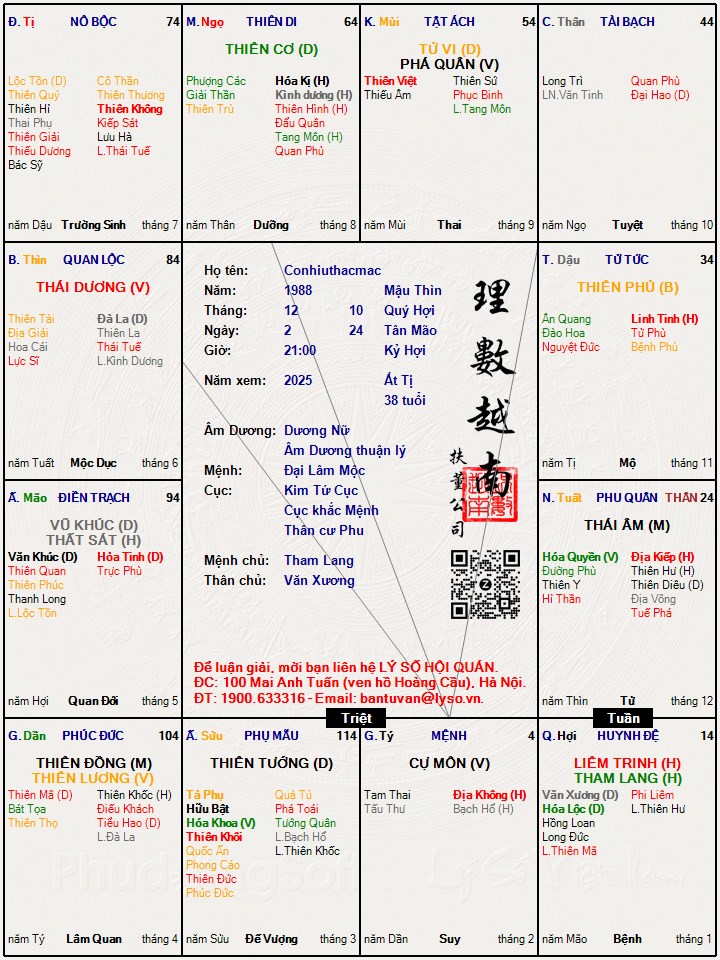 Đ. Tị NÔ BỘC 74
THIÊN DI
M. Ngọ THIÊN DI 64
THIÊN CƠ (D)
K. Mùi TẬT ÁCH 54
TỬ VI (D)
PHÁ QUÂN (V)
C. Thân TÀI BẠCH 44
Lộc Tồn (D) Cô Thần
Thiên Quý Thiên Thương
Thiên Hỉ Thiên Không
Thai Phụ Kiếp Sát
Thiên Giải Lưu Hà
Thiếu Dương L.Thái Tuế
Bác Sỹ
năm Dậu Trường Sinh tháng 7
Phượng Các Hóa Kị (H)
Giải Thần Kình dương (H)
Thiên Trù Thiên Hình (H)
Đẩu Quân
Tang Môn (H)
Quan Phủ
năm Thân Dưỡng tháng 8
Thiên Việt Thiên Sứ
Thiếu Âm Phục Binh
L.Tang Môn
năm Mùi Thai tháng 9
Long Trì Quan Phù
LN.Văn Tinh Đại Hao (D)
năm Ngọ Tuyệt tháng 10
B. Thìn QUAN LỘC 84
THÁI DƯƠNG (V)
Thiên Tài Đà La (D)
Địa Giải Thiên La
Hoa Cái Thái Tuế
Lực Sĩ L.Kình Dương
năm Tuất Mộc Dục tháng 6
Họ tên: Conhiuthacmac
Năm: 1988 Mậu Thìn
Tháng: 12 10 Quý Hợi
Ngày: 2 24 Tân Mão
Giờ: 21:00 Kỷ Hợi
Năm xem: 2025 Ất Tị
38 tuổi
Âm Dương: Dương Nữ
Âm Dương thuận lý
Mệnh: Đại Lâm Mộc
Cục: Kim Tứ Cục
Cục khắc Mệnh
Thân cư Phu
Mệnh chủ: Tham Lang
Thân chủ: Văn Xương
理數越南
扶董公司
Để luận giải, mời bạn liên hệ LÝ SỐ HỘI QUÁN.
ĐC: 100 Mai Anh Tuấn (ven hồ Hoàng Cầu), Hà Nội.
ĐT: 1900.633316 - Email: bantuvan@lyso.vn.
T. Dậu TỬ TỨC 34
THIÊN PHỦ (B)
Ân Quang Linh Tinh (H)
Đào Hoa Tử Phù
Nguyệt Đức Bệnh Phù
năm Tị Mộ tháng 11
Ấ. Mão ĐIỀN TRẠCH 94
VŨ KHÚC (D)
THẤT SÁT (H)
Văn Khúc (D) Hỏa Tinh (D)
Thiên Quan Trực Phù
Thiên Phúc
Thanh Long
L.Lộc Tồn
năm Hợi Quan Đới tháng 5
N. Tuất PHU QUÂN THÂN 24
THÁI ÂM (M)
Hóa Quyền (V) Địa Kiếp (H)
Đường Phù Thiên Hư (H)
Thiên Y Thiên Diêu (D)
Hỉ Thần Địa Võng
Tuế Phá
năm Thìn Tử tháng 12
Triệt
Tuần
G. Dần PHÚC ĐỨC 104
THIÊN ĐỒNG (M)
THIÊN LƯƠNG (V)
Thiên Mã (D) Thiên Khốc (H)
Bát Tọa Điếu Khách
Thiên Thọ Tiểu Hao (D)
L.Đà La
năm Tý Lâm Quan tháng 4
Ấ. Sửu PHỤ MẪU 114
THIÊN TƯỚNG (D)
Tả Phụ Quả Tú
Hữu Bật Phá Toái
Hóa Khoa (V) Tướng Quân
Thiên Khôi L.Bạch Hổ
Quốc Ấn L.Thiên Khốc
Phong Cáo
Thiên Đức
Phúc Đức
năm Sửu Đế Vượng tháng 3
G. Tý MỆNH 4
CỰ MÔN (V)
Tam Thai Địa Không (H)
Tấu Thư Bạch Hổ (H)
năm Dần Suy tháng 2
Q. Hợi HUYNH ĐỆ 14
LIÊM TRINH (H)
THAM LANG (H)
Văn Xương (D) Phi Liêm
Hóa Lộc (D) L.Thiên Hư
Hồng Loan
Long Đức
L.Thiên Mã
năm Mão Bệnh tháng 1